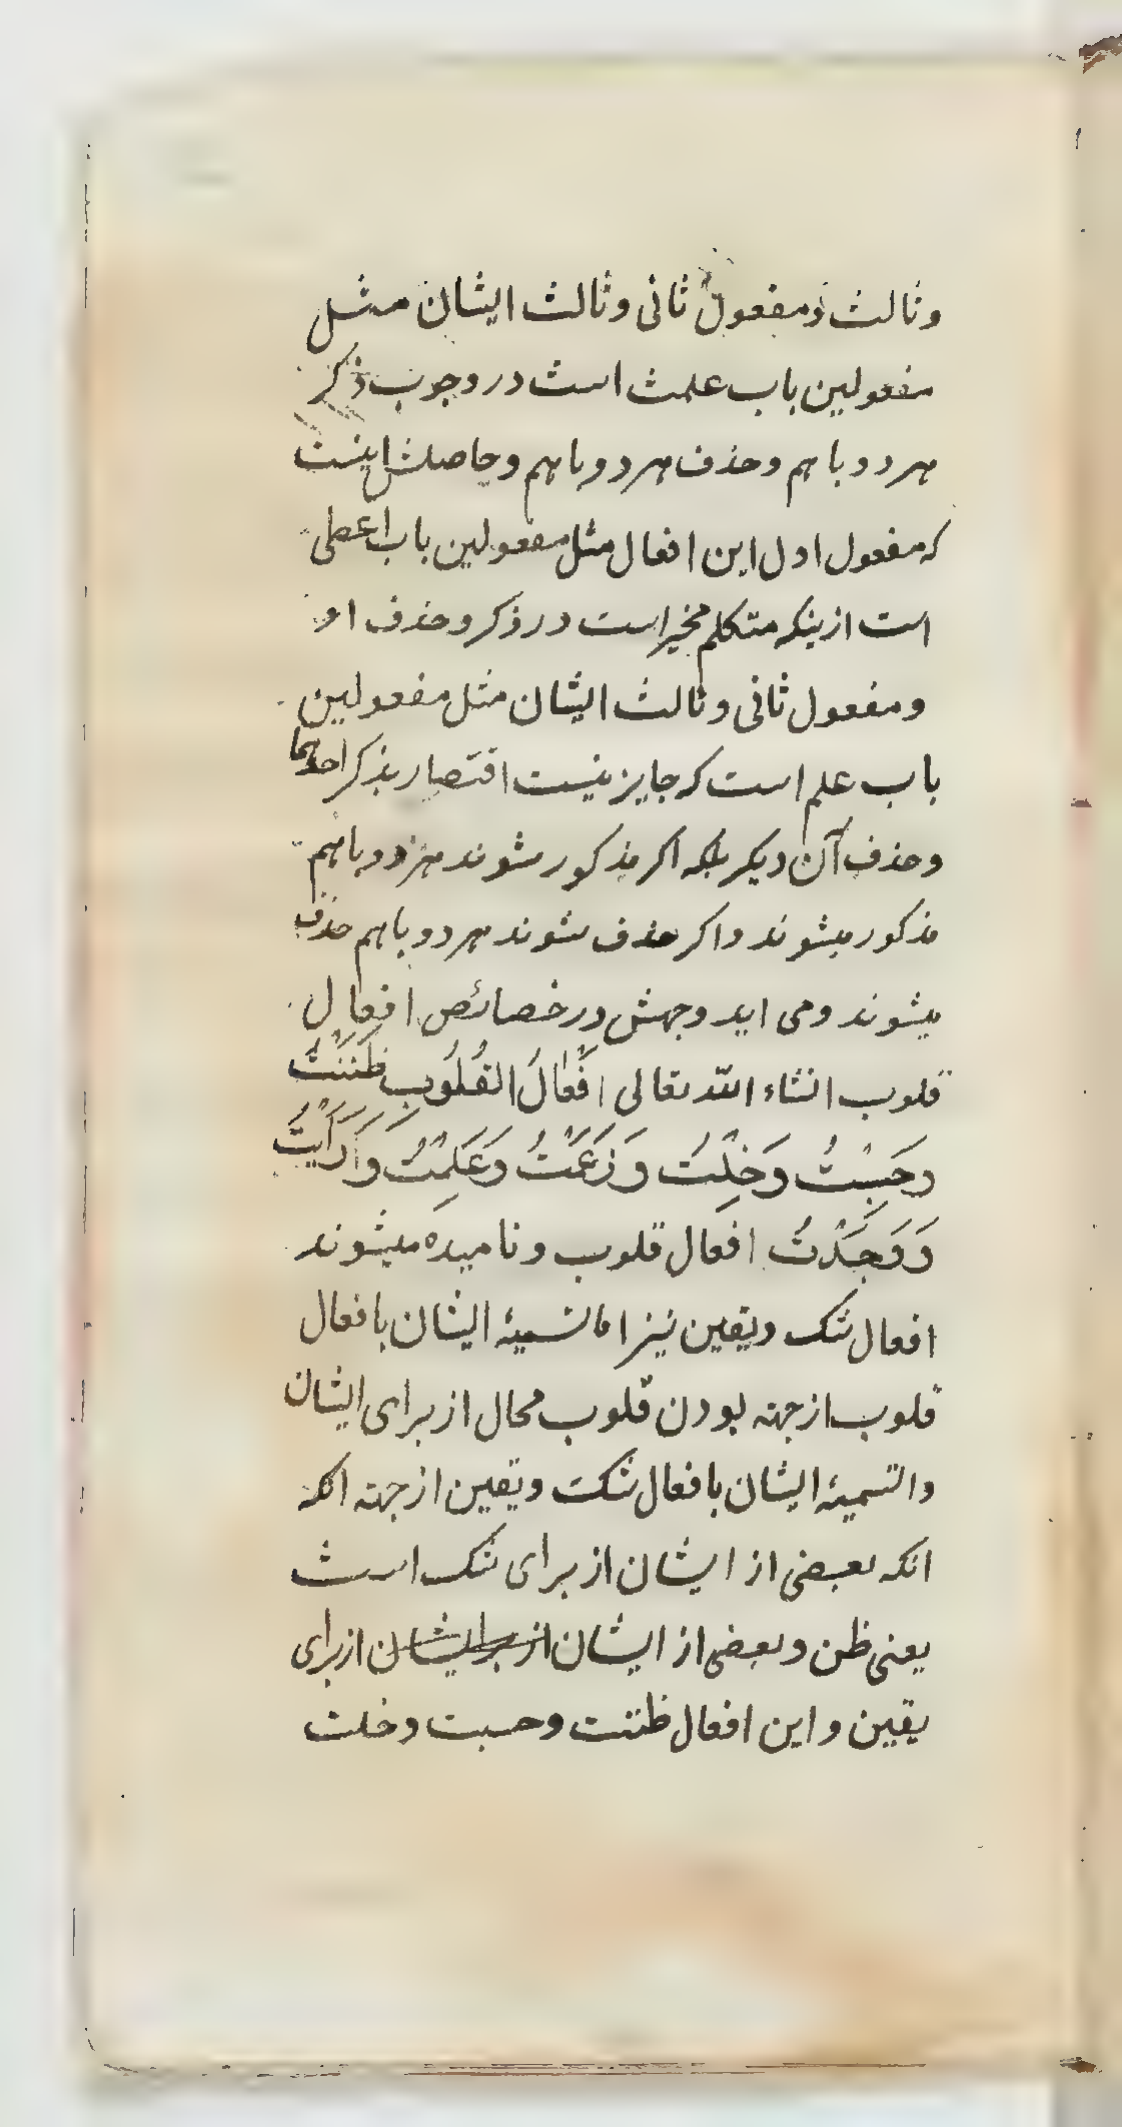 وثالث ومفعول ثانی وثالث ایشان مثل
مفعولین باب علمت است در وجوب ذکر
هر دو با هم وحذف هر دو با هم وحاصلش اینست
که مفعول اول این افعال مثل مفعولین باب اعطی
است ازینکه متکلم مخیر است در ذکر وحذف او
ومفعول ثانی وثالث ایشان مثل مفعولین
باب علم است که جایز نیست اقتصار بذکر احدهما
وحذف آن دیکر بلکه اکر مذکور شوند هر دو با هم
مذکور میشوند واکر حذف شوند هر دو با هم حذف
میشوند ومی اید وجهش در خصائص افعال
قلوب انشاء الله تعالی اَفْعٰالَ القُلُوبِ ظَنَنْتُ
وحَسِبْتُ وَخِلْتُ وَزَعَمْتُ وَعَلِمْتُ وَرَاَیْتُ
وَوَجَدْتُ افعال قلوب ونامیده میشوند
افعال شک ویقین نیز اما تسمیهٔ ایشان بافعال
قلوب از جهته بودن قلوب محال از برای ایشان
واتسمیهٔ ایشان بافعال شک ویقین از جهته انکه
انکه بعضی از ایشان از برای شک است
یعنی ظن وبعضی از ایشان از برا ایشان از برای
یقین واین افعال ظننت وحسبت وخلت